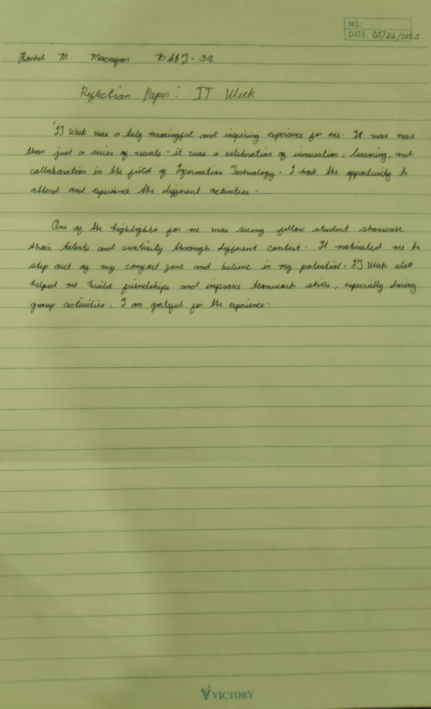 NO.:
DATE: 05/26/2025
Rachel M. Macaryan BSIT-3A
Reflection Paper: IT Week
IT Week was a truly meaningful and inspiring experience for me. It was more
than just a series of events - it was a celebration of innovation, learning, and
collaboration in the field of Information Technology. I had the opportunity to
attend and experience the different activities.
One of the highlights for me was seeing fellow student showcase
their talents and creativity through different contest. It motivated me to
step out of my comfort zone and believe in my potential. IT Week also
helped me build friendships and improve teamwork skills, especially during
group activities. I am grateful for the experience.
VICTORY